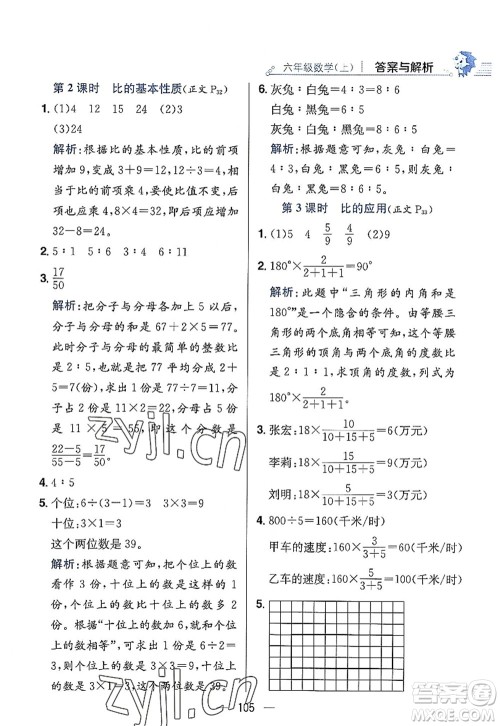 六年级数学(上) 答案与解析
第2课时 比的基本性质(正文P32)
1. (1)4 12 15 24 (2)3
(3)24
解析:根据比的基本性质,比的前项
增加9,变成3+9=12,12÷3=4,相
当于比的前项乘4,要使比值不变,后
项也应乘4,8×4=32,即后项应增加
32-8=24。
2. 5∶1 5∶6 3∶4 6∶11
3. 17/50
解析:把分子与分母各加上5以后,
分子与分母的和为67+2×5=77。
此时分子与分母的最简单的整数比
是2∶5,也就是把77平均分成2+
5=7(份),求出1份是77÷7=11,
2份是11×2=22,5份是
11×5=55,所以原分数是
(22-5)/(55-5)=17/50。
4. 4∶5
5. 个位:6÷(3-1)=3 3×3=9
十位:3×1=3
这个两位数是39。
解析:根据题意可把十位上的数
看作1份,那么个位上的数就是这样
的3份,个位上的数比十位上的数多
2份。十位上的数加6,就与个位上
的数相等,所以2份是6,求出1份
是3,则个位上的数是3×3=9,十位
上的数是3×1=3,所以这个两位数
是39。
6. 灰兔∶白兔=4∶3=8∶6
白兔∶黑兔=6∶5
灰兔∶白兔∶黑兔=8∶6∶5
解析:根据题意可知,灰兔∶白兔=
4∶3=8∶6,白兔∶黑兔=6∶5,所
以灰兔∶白兔∶黑兔=8∶6∶5。
第3课时 比的应用(正文P33)
1. (1)5 4 5/9 4/9 (2)9
2. 180°×2/(2+1+1)=90°
解析:此题中“三角形的内角和是
180°”是一个隐含的条件。由于等腰
三角形的两个底角相等可知,这个等腰
三角形的顶角与两个底角的度数比
是2∶1∶1,求顶角的度数,列式为
180°×2/(2+1+1)=90°。
3. 张宏:18×10/(10+15+5)=6(万元)
李莉:18×15/(10+15+5)=9(万元)
刘明:18×5/(10+15+5)=3(万元)
4. 800÷5=160(千米/时)
甲车的速度:160×3/(3+5)=60(千米/时)
乙车的速度:160×5/(3+5)=100(千米/时)
5.
105
zyjl.cn
zyjl.cn